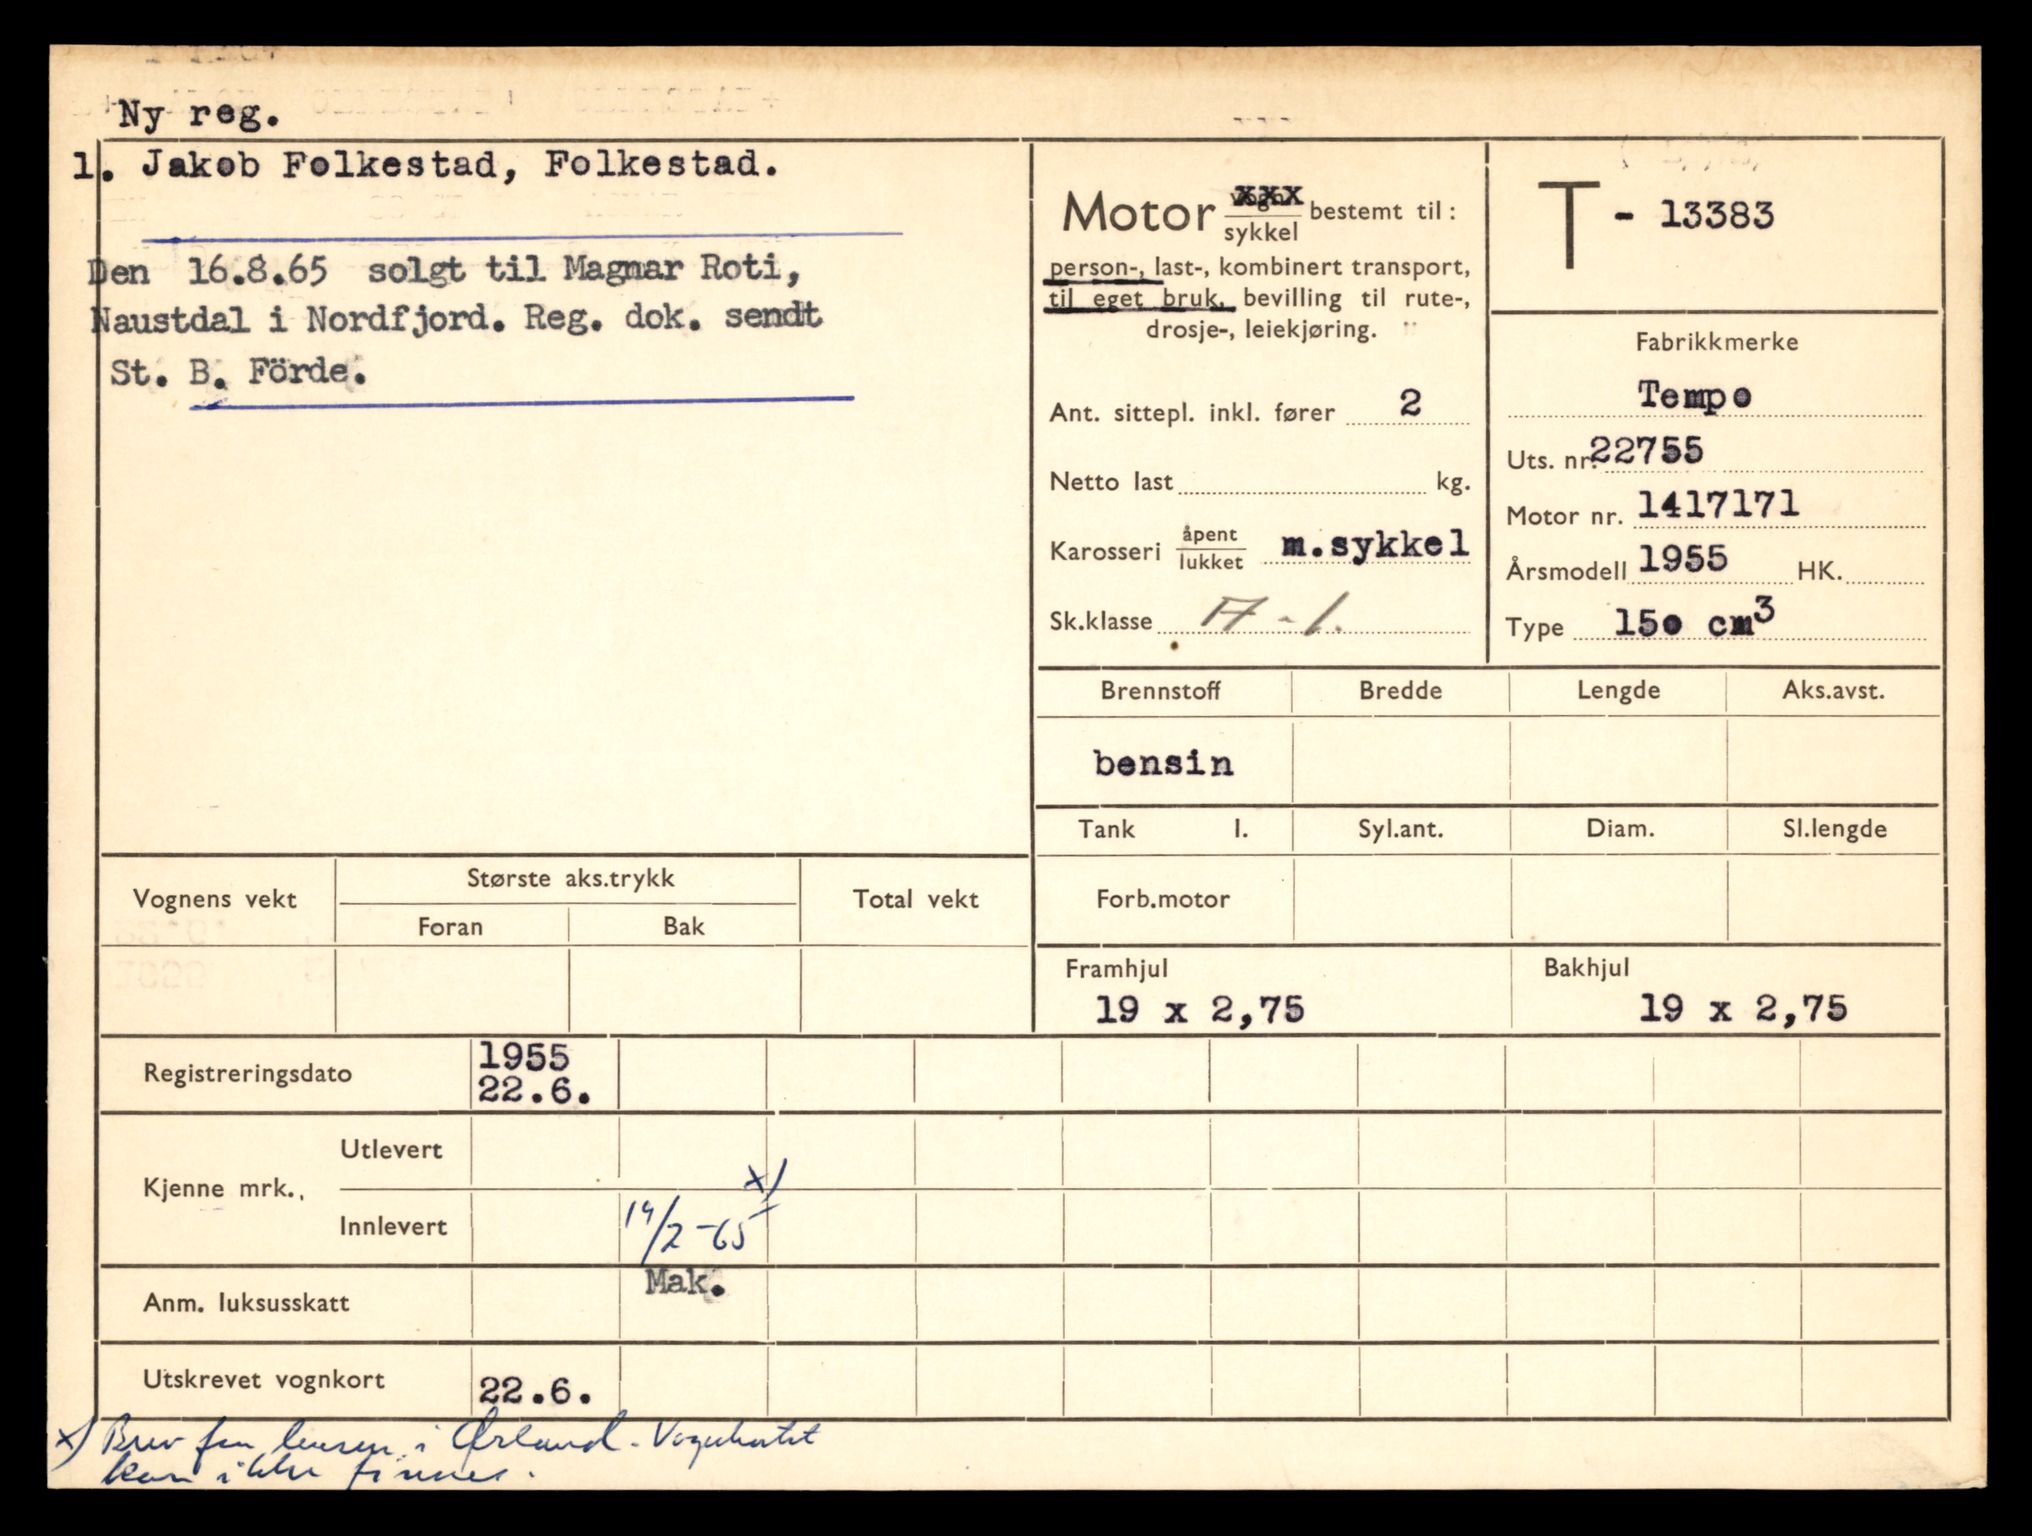 Ny reg.
1. Jakob Folkestad, Folkestad.
Den 16.8.65 solgt til Magnar Roti,
Naustdal i Nordfjord. Reg. dok. sendt
St. B. Förde.
Motor vogn/sykkel bestemt til:
person-, last-, kombinert transport,
til eget bruk, bevilling til rute-,
drosje-, leiekjøring.
Ant. sittepl. inkl. fører 2
Netto last kg.
Karosseri åpent/lukket m.sykkel
Sk.klasse A-1.
T - 13383
Fabrikkmerke
Tempo
Uts. nr. 22755
Motor nr. 1417171
Årsmodell 1955 HK.
Type 150 cm3
Brennstoff Bredde Lengde Aks.avst.
bensin
Tank l. Syl.ant. Diam. Sl.lengde
Forb.motor
Framhjul Bakhjul
19 x 2,75 19 x 2,75
Vognens vekt Største aks.trykk Total vekt
Foran Bak
Registreringsdato 1955
22.6.
Kjenne mrk., Utlevert
Innlevert 14/2-65 x)
Mak.
Anm. luksusskatt
Utskrevet vognkort 22.6.
x) Brev fra lensm. i Ørland. Vognkortet
kan ikke finnes.